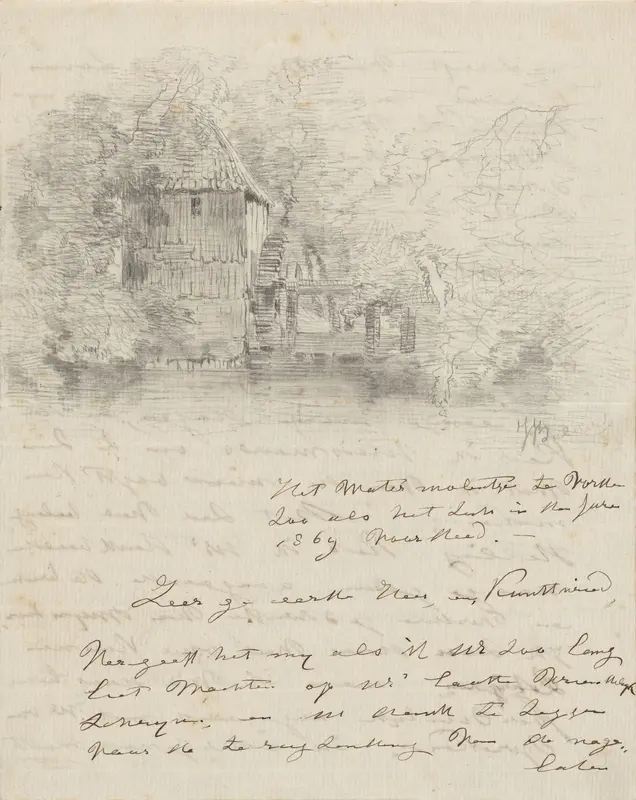 Het Water molentje te Vorden
Zoo als het zich in den Jare
1869 voordeed. —
Zeer ge eerde Heer, en, Kunstvriend,
Vergeeft het my als ik UE zoo lang
liet Wachten op UE' laatste Vriendelyk
Schryven, en UE dank te zeggen
voor de terugzending van de nage„
laten